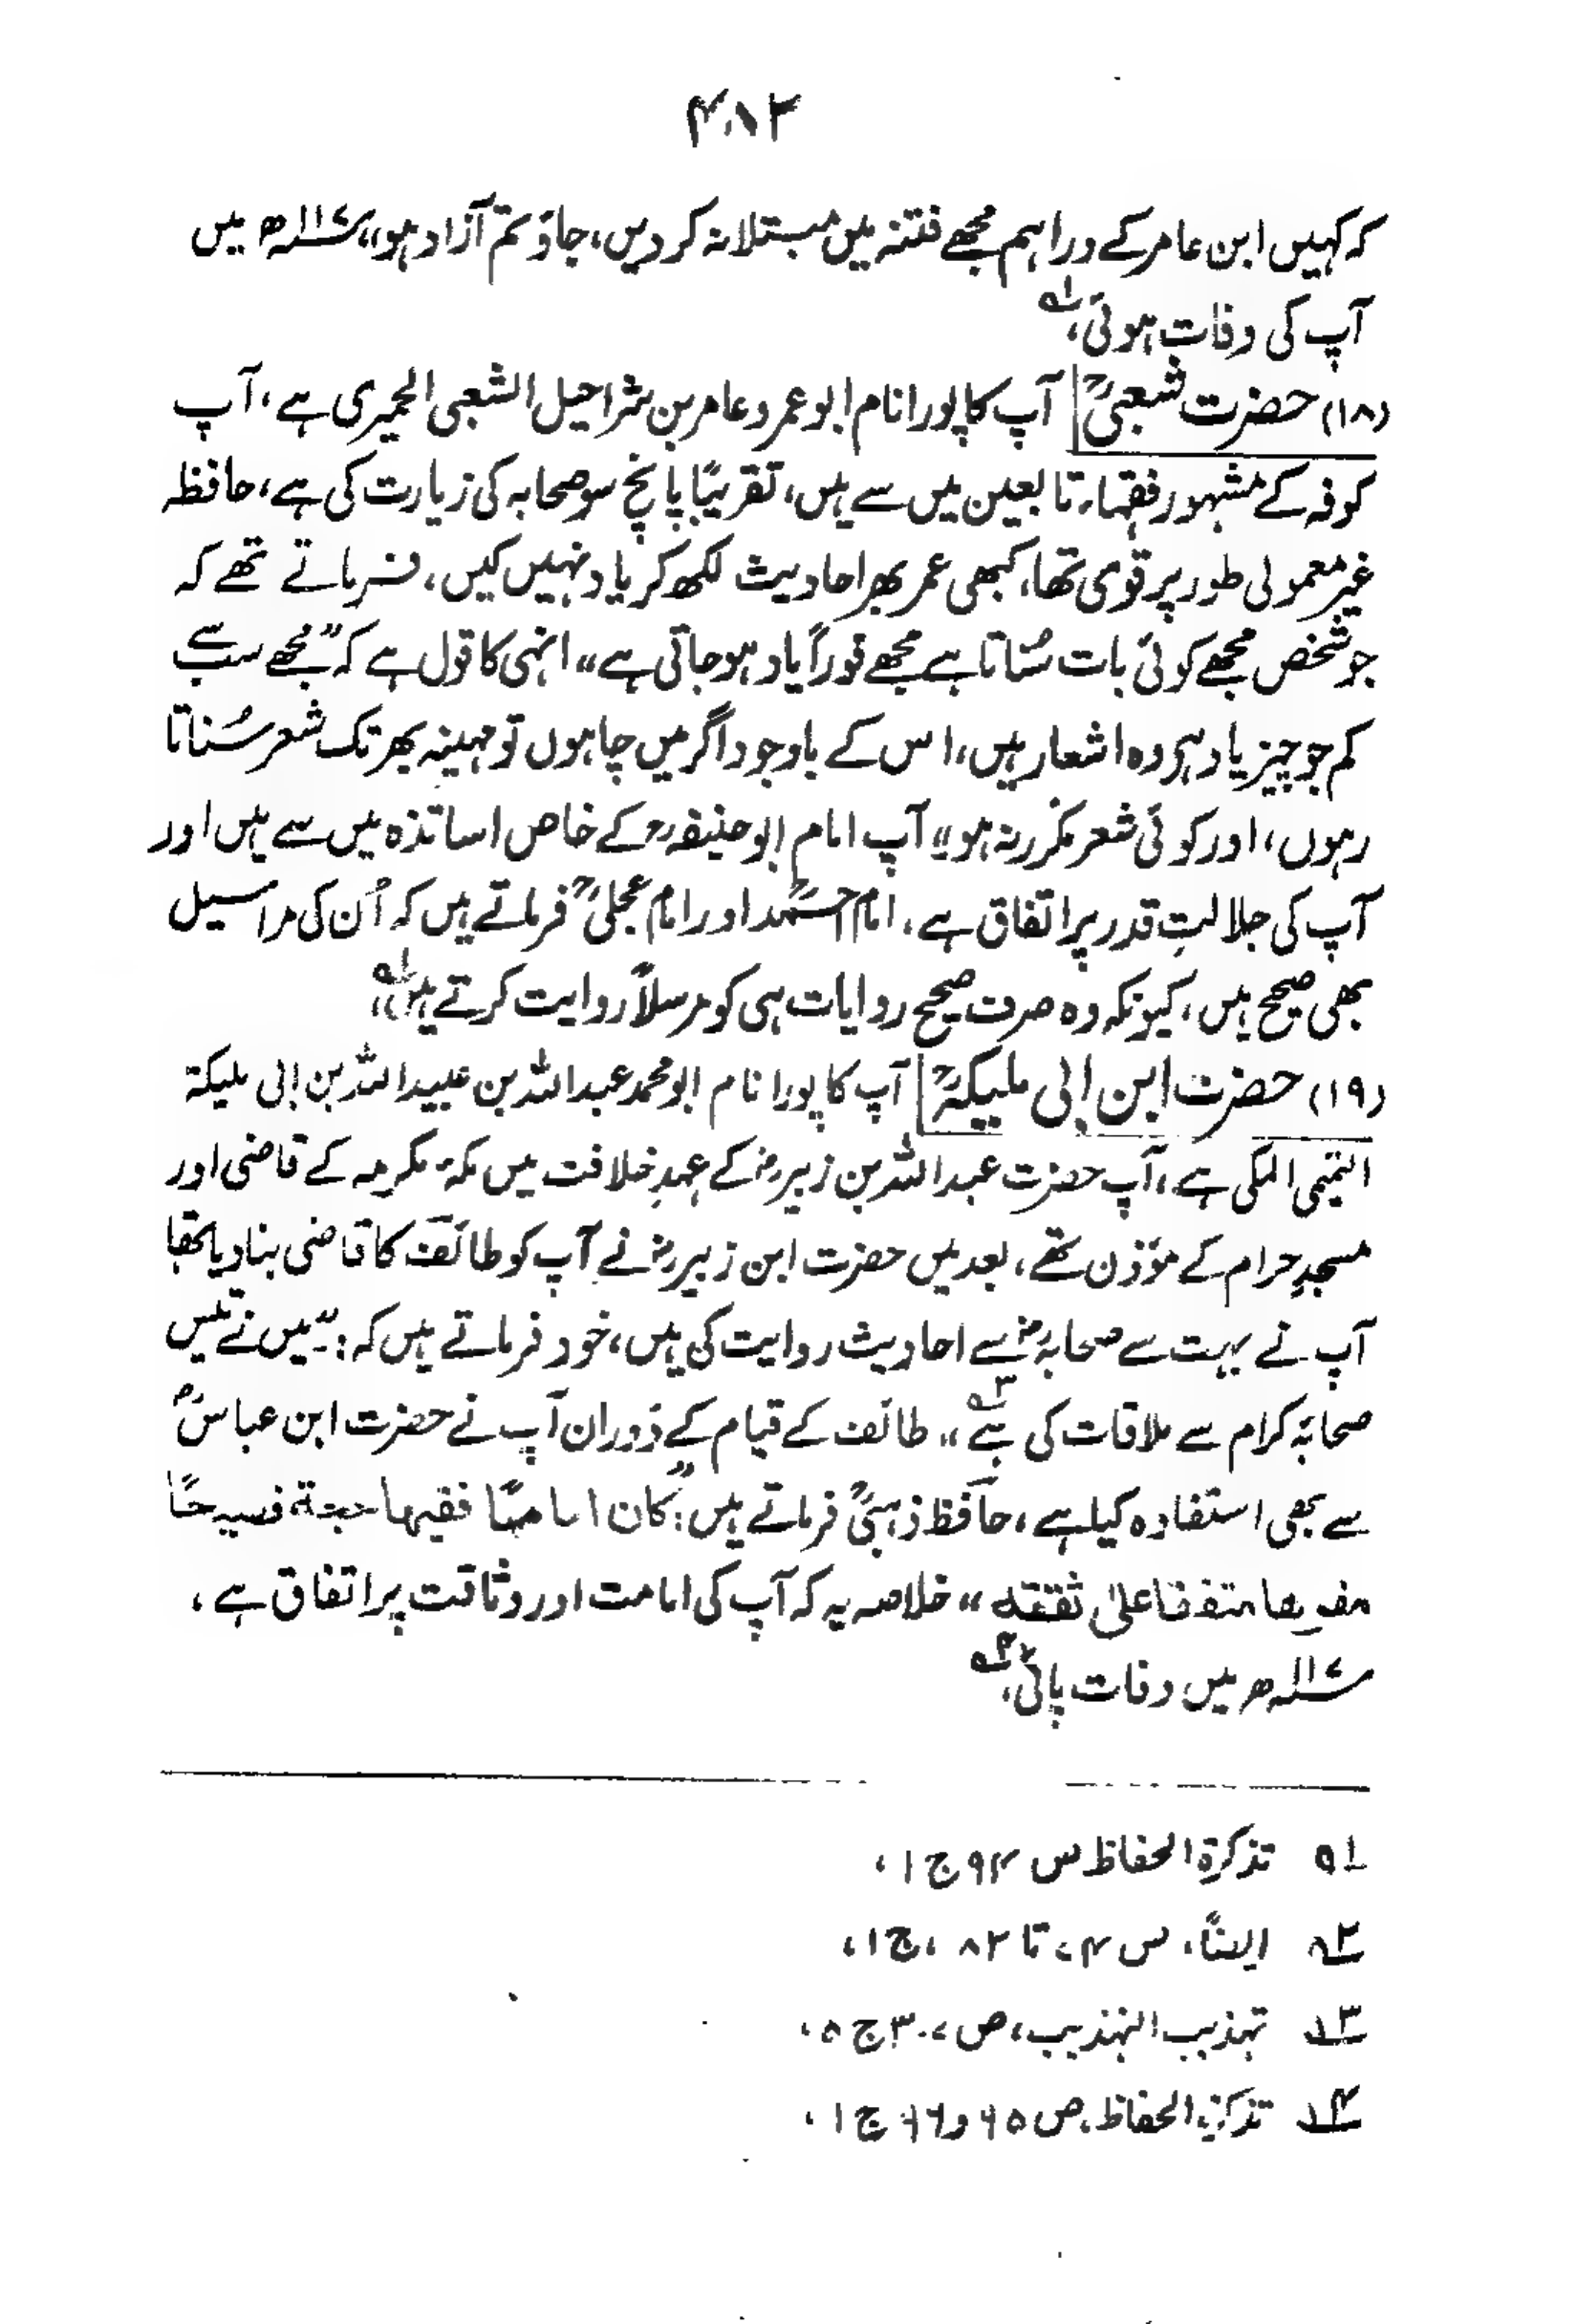 ۴۸۲
کہ کہیں ابن عامر کے دراہم مجھے فتنہ میں مبتلا نہ کر دیں، جاؤ تم آزاد ہو،، ۱۱۷ھ میں
آپ کی وفات ہوئی، لہ
(۱۸) حضرت شعبیؒ آپ کا پورا نام ابو عمرو عامر بن شراحیل الشعبی الحمیری ہے، آپ
کوفہ کے مشہور فقہاء تابعین میں سے ہیں، تقریبًا پانچ سو صحابہ کی زیارت کی ہے، حافظہ
غیر معمولی طور پر قوی تھا، کبھی عمر بھر احادیث لکھ کر یاد نہیں کیں، فرماتے تھے کہ
جو شخص مجھے کوئی بات سُناتا ہے مجھے فوراً یاد ہو جاتی ہے،، انہی کا قول ہے کہ ”مجھے سب سے
کم جو چیز یاد ہر وہ اشعار ہیں، اس کے باوجود اگر میں چاہوں تو مہینہ بھر تک شعر سُناتا
رہوں، اور کوئی شعر مکرر نہ ہو،، آپ امام ابو حنیفہ رح کے خاص اساتذہ میں سے ہیں اور
آپ کی جلالتِ قدر پر اتفاق ہے، امام احمدؒ اور امام عجلیؒ فرماتے ہیں کہ اُن کی مراسیل
بھی صحیح ہیں، کیونکہ وہ صرف صحیح روایات ہی کو مرسلاً روایت کرتے ہیں، لہ
(۱۹) حضرت ابن ابی ملیکہؒ آپ کا پورا نام ابو محمد عبداللہ بن عبیداللہ بن ابی ملیکۃ
التیمی المکی ہے، آپ حضرت عبداللہ بن زبیر رض کے عہدِ خلافت میں مکۂ مکرمہ کے قاضی اور
مسجدِ حرام کے مؤذن تھے، بعد میں حضرت ابن زبیر رض نے آپ کو طائف کا قاضی بنا دیا تھا
آپ نے بہت سے صحابہ رض سے احادیث روایت کی ہیں، خود فرماتے ہیں کہ :۔ ”میں نے تیس
صحابۂ کرام سے ملاقات کی ہے،، ۳ہ طائف کے قیام کے دَوران آپ نے حضرت ابن عباسؓ
سے بھی استفادہ کیا ہے، حافظ ذہبیؒ فرماتے ہیں: ”کان اماما فقیہا حجۃ فصیحًا
مفوها متفقا علیٰ ثقته،، خلاصہ یہ کہ آپ کی امامت اور وثاقت پر اتفاق ہے،
۱۱۷ھ میں وفات پائی، ۴ہ
لہ تذکرۃ الحفاظ ص ۹۴ ج ۱،
۲ہ ایضًا، ص ۷۴ تا ۸۲، ج ۱،
۳ہ تہذیب التہذیب، ص ۳۰۷ ج ۵،
۴ہ تذکرۃ الحفاظ، ص ۹۵ و ۹۶ ج ۱،